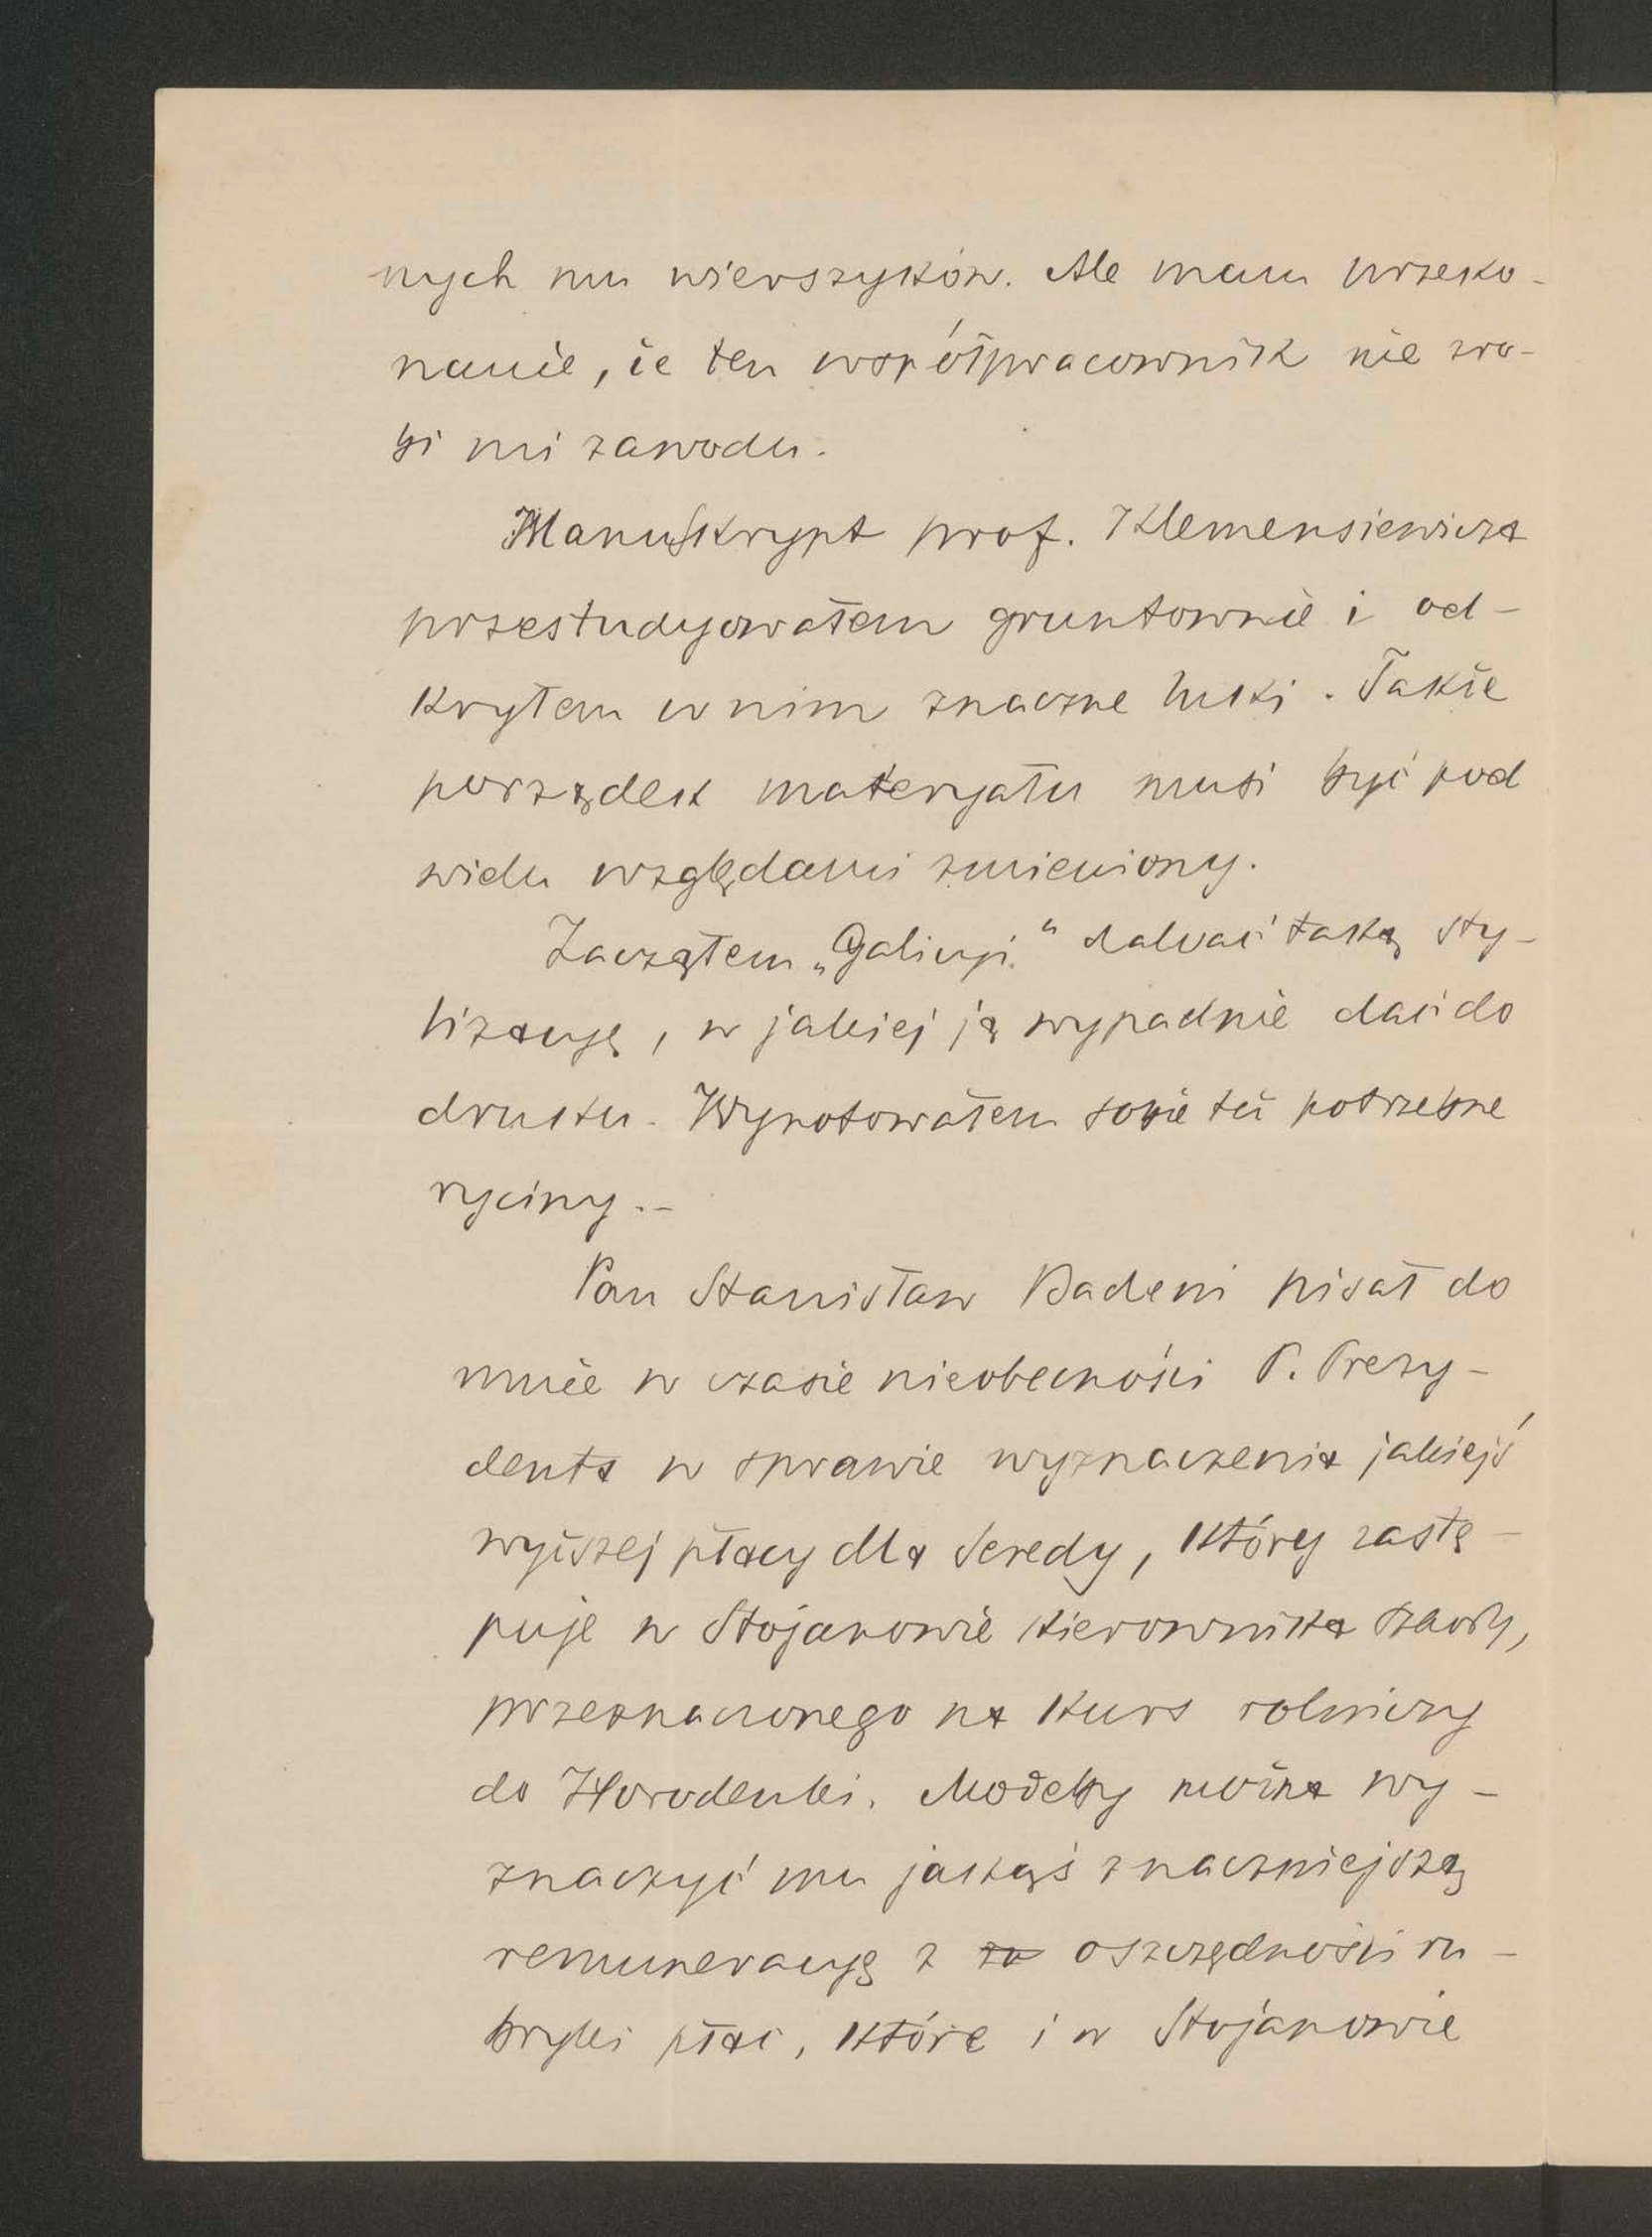 nych mu wierszyków. Ale mam przeko-
nanie, że ten współpracownik nie zro-
bi mi zawodu.
Manuskrypt prof. Klemensiewicza
przestudyowałem gruntownie i od-
kryłem w nim znaczne luki. Także
porządek materyału musi być pod
wielu względami zmieniony.
Zacząłem „Galicyi" nadwać taką sty-
lizacyę, w jakiej ją wypadnie dać do
druku. Wynotowałem sobie też potrzebne
ryciny.-
Pan Stanisław Badeni pisał do
mnie w czasie nieobecności P. Prezy-
denta w sprawie wyznaczenia jakiejś
wyższej płacy dla Seredy, który zastę-
puje w Stojanowie kierownika szkoły,
przeznaczonego na kurs rolniczy
do Horodenki. Możeby można wy-
znaczyć mu jakąś znaczniejszą
remuneracyę z oszczędności ru-
bryki płac, które i w Stojanowie